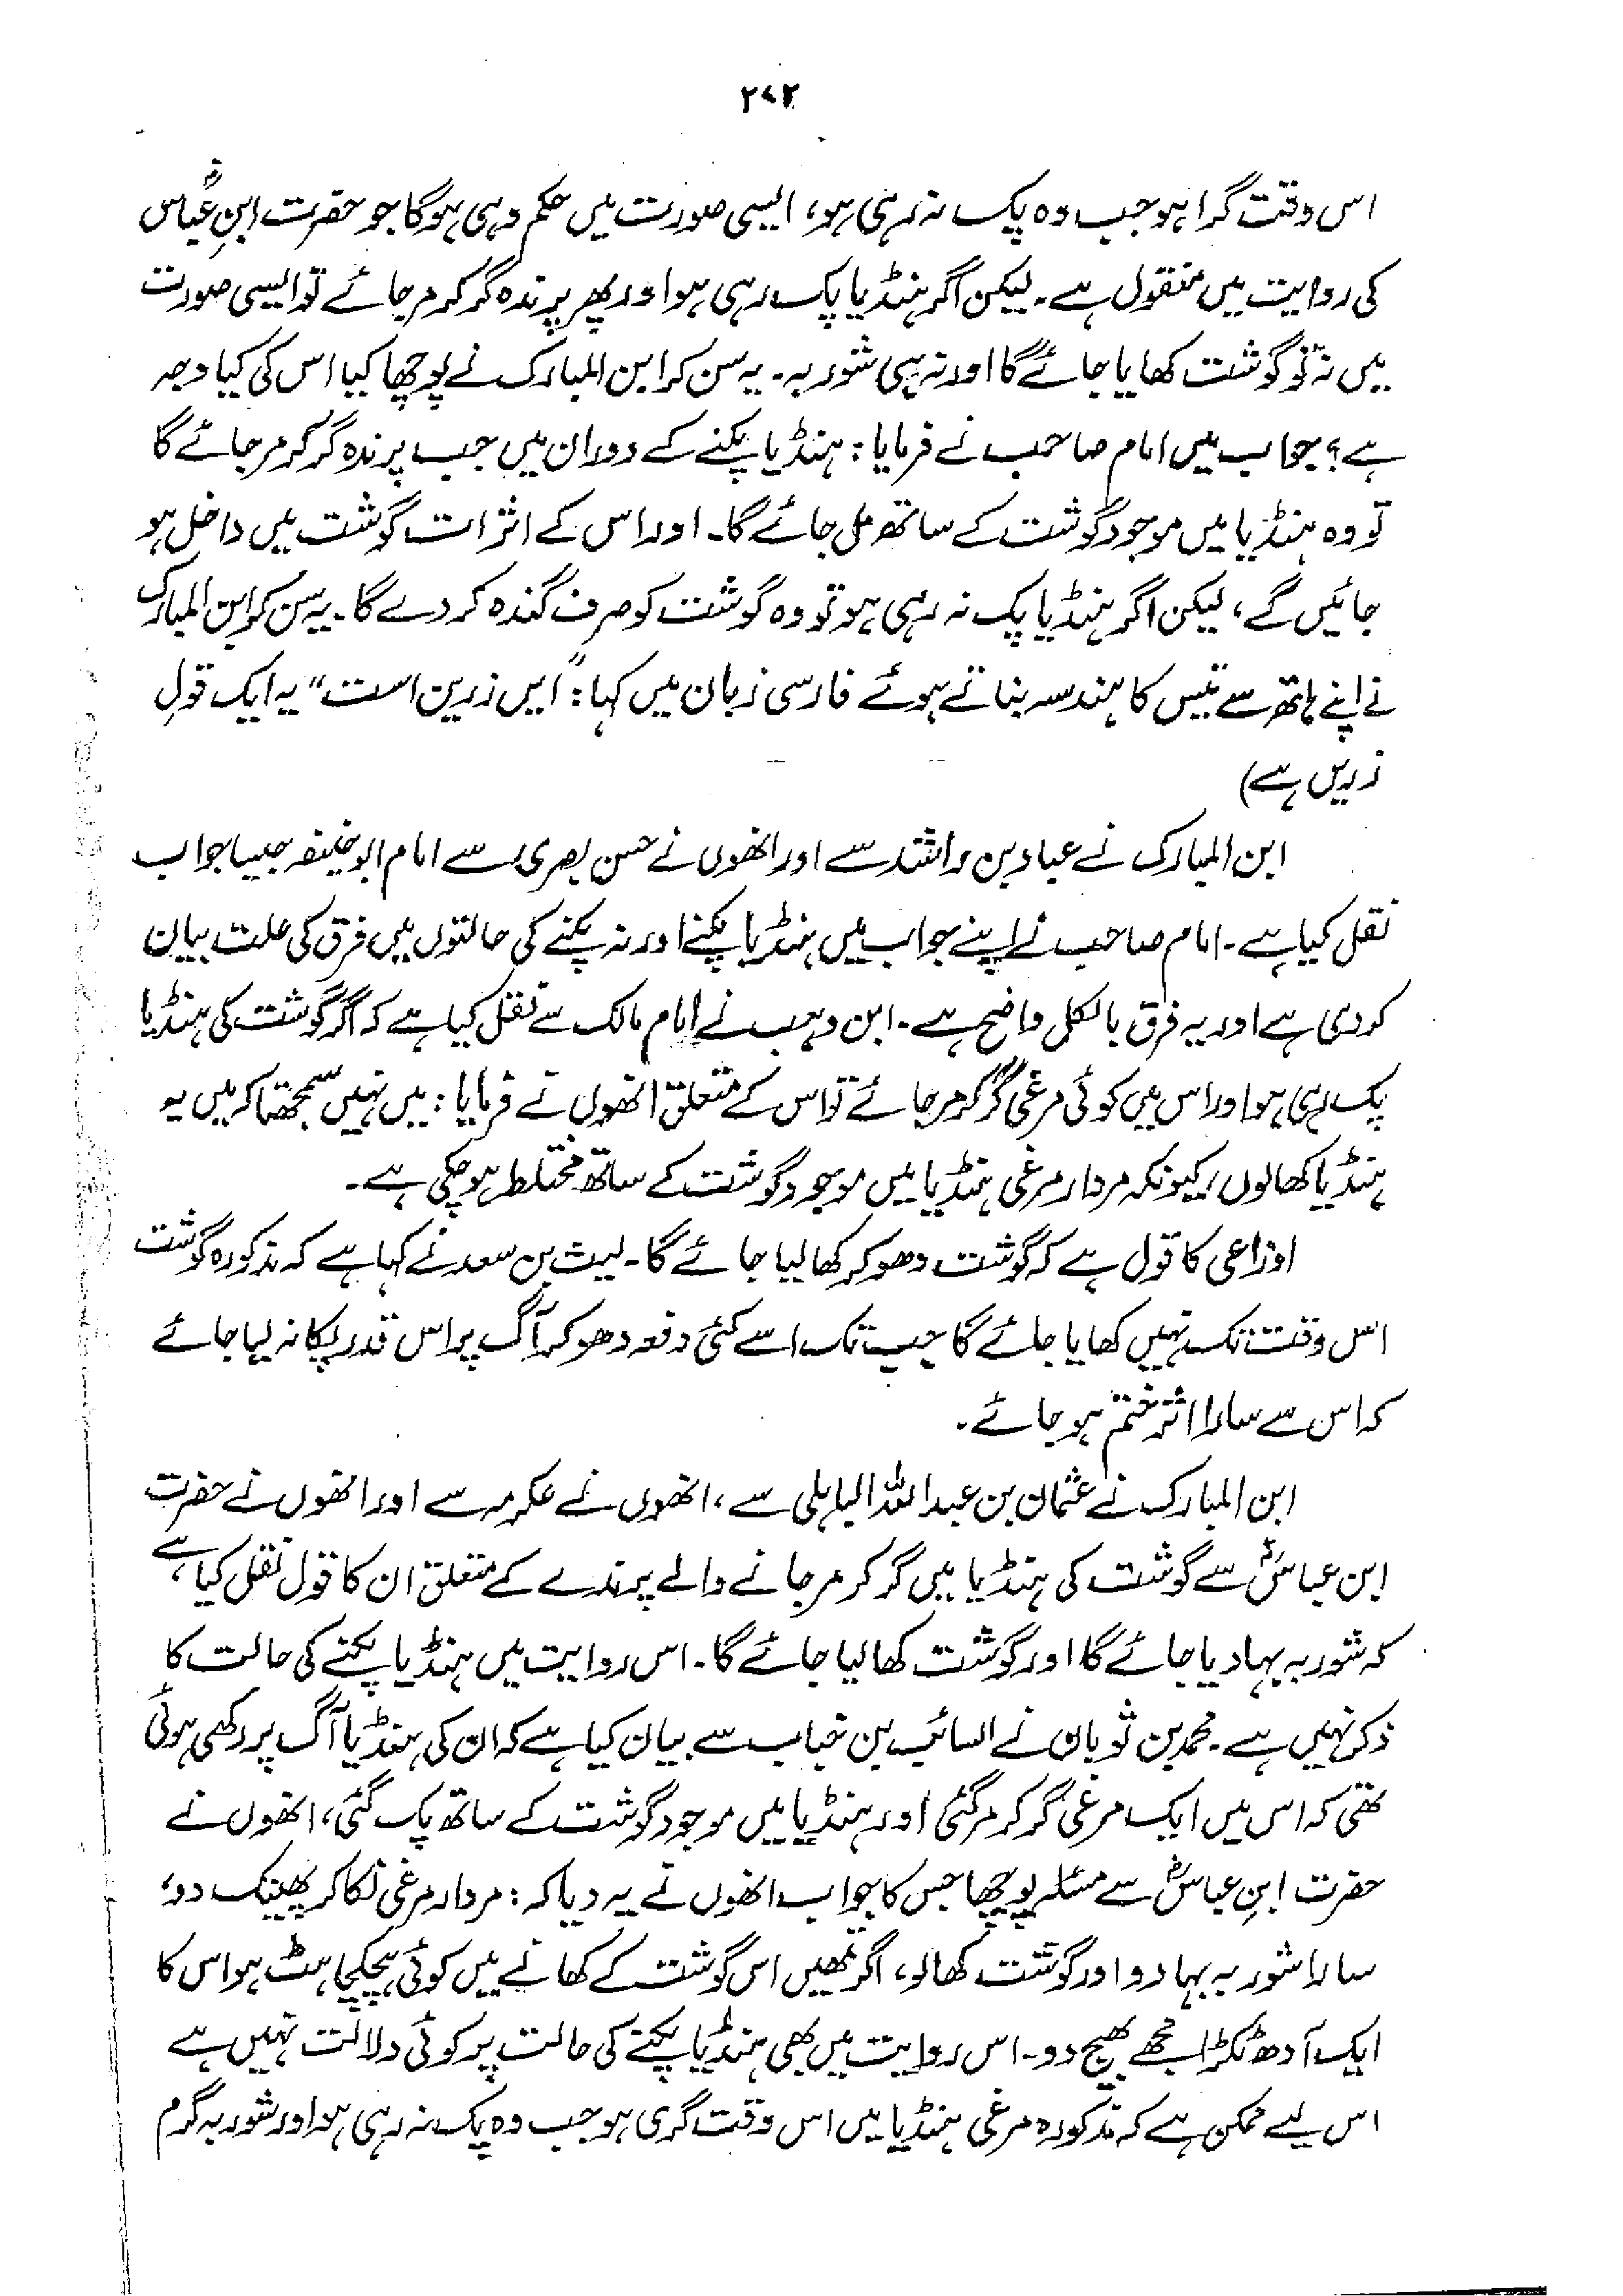 ۲۷۲
اس وقت گرا ہو جب وہ پک نہ رہی ہو، ایسی صورت میں حکم وہی ہوگا جو حضرت ابنِ عباسؓ
کی روایت میں منقول ہے۔ لیکن اگر ہنڈیا پک رہی ہو اور پھر پرندہ گر کر مر جائے تو ایسی صورت
میں نہ تو گوشت کھایا جائے گا اور نہ ہی شوربہ۔ یہ سن کر ابن المبارک نے پوچھا کیا اس کی کیا وجہ
ہے؟ جواب میں امام صاحب نے فرمایا: ہنڈیا پکنے کے دوران میں جب پرندہ گر کر مر جائے گا
تو وہ ہنڈیا میں موجود گوشت کے ساتھ مل جائے گا۔ اور اس کے اثرات گوشت میں داخل ہو
جائیں گے، لیکن اگر ہنڈیا پک نہ رہی ہو تو وہ گوشت کو صرف گندہ کر دے گا۔ یہ سن کر ابن المبارک
نے اپنے ہاتھ سے تیس کا ہندسہ بناتے ہوئے فارسی زبان میں کہا: "ایں زرین است" یہ ایک قولِ
زریں ہے)
ابن المبارک نے عباد بن راشد سے اور انھوں نے حسن بصری سے امام ابو حنیفہ جیسا جواب
نقل کیا ہے۔ امام صاحب نے اپنے جواب میں ہنڈیا پکنے اور نہ پکنے کی حالتوں میں فرق کی علت بیان
کر دی ہے اور یہ فرق بالکل واضح ہے۔ ابن وہب نے امام مالک سے نقل کیا ہے کہ اگر گوشت کی ہنڈیا
پک رہی ہو اور اس میں کوئی مرغی گر کر مر جائے تو اس کے متعلق انھوں نے فرمایا: میں نہیں سمجھتا کہ میں یہ
ہنڈیا کھالوں، کیونکہ مردار مرغی ہنڈیا میں موجود گوشت کے ساتھ مختلط ہو چکی ہے۔
اوزاعی کا قول ہے کہ گوشت دھو کر کھا لیا جائے گا۔ لیث بن سعد نے کہا ہے کہ مذکورہ گوشت
اس وقت تک نہیں کھایا جائے گا جب تک اسے کئی دفعہ دھو کر آگ پر اس قدر پکا نہ لیا جائے
کہ اس سے سارا اثر ختم ہو جائے۔
ابن المبارک نے عثمان بن عبداللہ الباہلی سے، انھوں نے عکرمہ سے اور انھوں نے حضرت
ابن عباسؓ سے گوشت کی ہنڈیا میں گر کر مر جانے والے پرندے کے متعلق ان کا قول نقل کیا ہے
کہ شوربہ بہا دیا جائے گا اور گوشت کھا لیا جائے گا۔ اس روایت میں ہنڈیا پکنے کی حالت کا
ذکر نہیں ہے۔ محمد بن ثوبان نے السائب بن خباب سے بیان کیا ہے کہ ان کی ہنڈیا آگ پر رکھی ہوئی
تھی کہ اس میں ایک مرغی گر کر مر گئی اور ہنڈیا میں موجود گوشت کے ساتھ پک گئی، انھوں نے
حضرت ابنِ عباسؓ سے مسئلہ پوچھا جس کا جواب انھوں نے یہ دیا کہ: مردار مرغی نکا کر پھینک دو،
سارا شوربہ بہا دو اور گوشت کھا لو، اگر تمھیں اس گوشت کے کھانے میں کوئی ہچکچاہٹ ہو اس کا
ایک آدھ ٹکڑا مجھے بھیج دو۔ اس روایت میں بھی ہنڈیا پکنے کی حالت پر کوئی دلالت نہیں ہے
اس لیے ممکن ہے کہ مذکورہ مرغی ہنڈیا میں اس وقت گری ہو جب وہ پک نہ رہی ہو اور شوربہ گرم